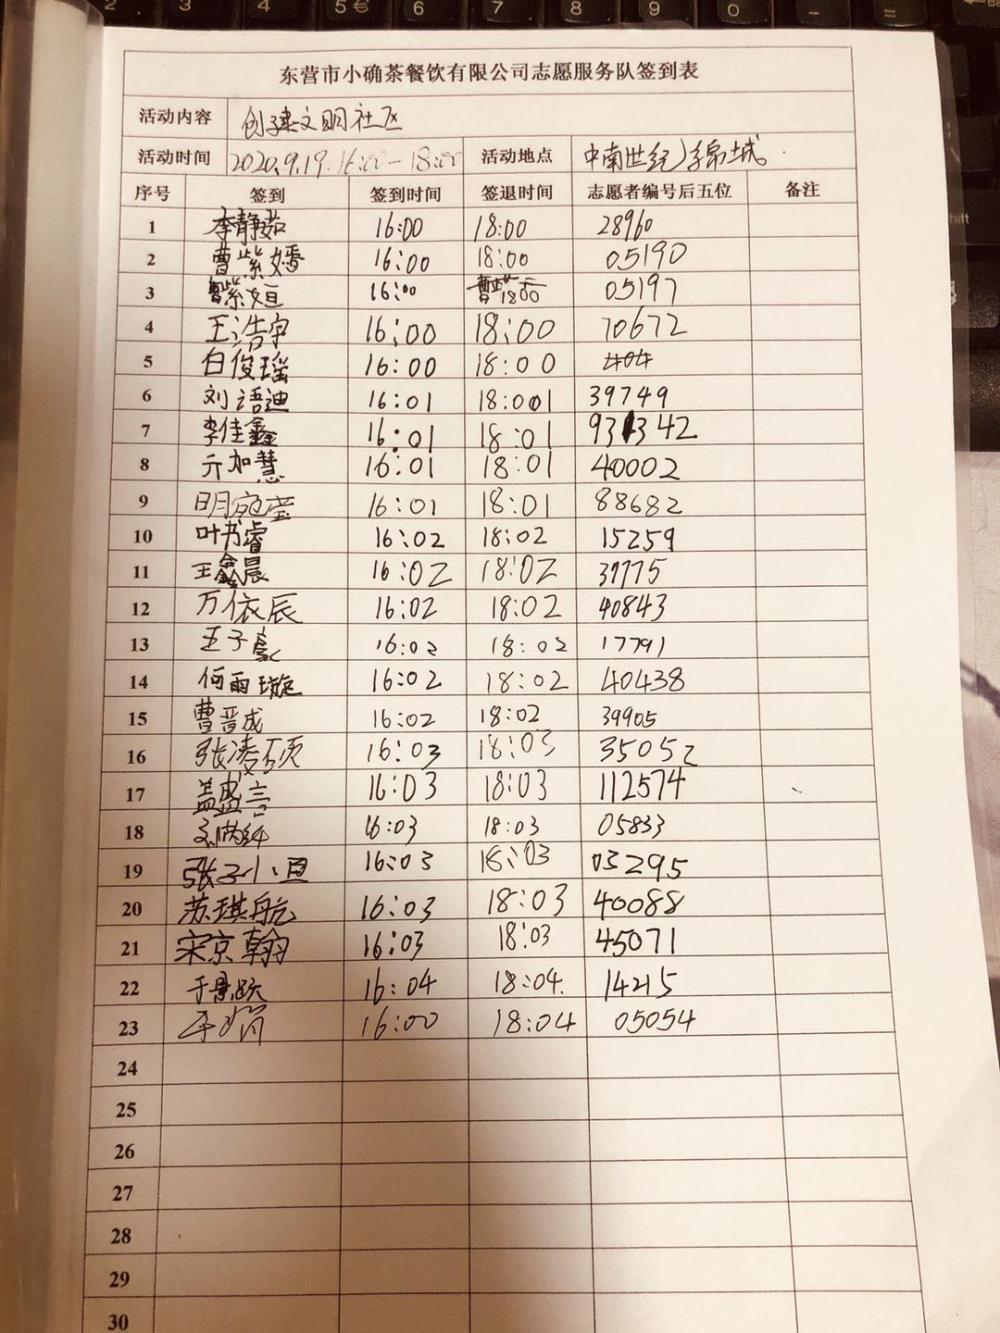 东营市小确茶餐饮有限公司志愿服务队签到表
活动内容 创建文明社区
活动时间 2020.9.19. 16:00-18:00 活动地点 中南世纪锦城
序号 签到 签到时间 签退时间 志愿者编号后五位 备注
1 李静茹 16:00 18:00 28960
2 曹紫嫣 16:00 18:00 05190
3 曹紫姮 16:00 18:00 05197
4 王浩宇 16:00 18:00 70672
5 白俊瑶 16:00 18:00
6 刘语迪 16:01 18:001 39749
7 李佳鑫 16:01 18:01 93342
8 亓加慧 16:01 18:01 40002
9 明宛莹 16:01 18:01 88682
10 叶书睿 16:02 18:02 15259
11 王鑫晨 16:02 18:02 39775
12 万依辰 16:02 18:02 40843
13 王子豪 16:02 18:02 17791
14 何雨璇 16:02 18:02 40438
15 曹晋成 16:02 18:02 39905
16 张凌硕 16:03 18:03 35052
17 盖盛言 16:03 18:03 112574
18 16:03 18:03 05833
19 张子小 16:03 18:03 03295
20 苏琪航 16:03 18:03 40088
21 宋京翰 16:03 18:03 45071
22 于景跃 16:04 18:04. 14215
23 16:00 18:04 05054
24
25
26
27
28
29
30